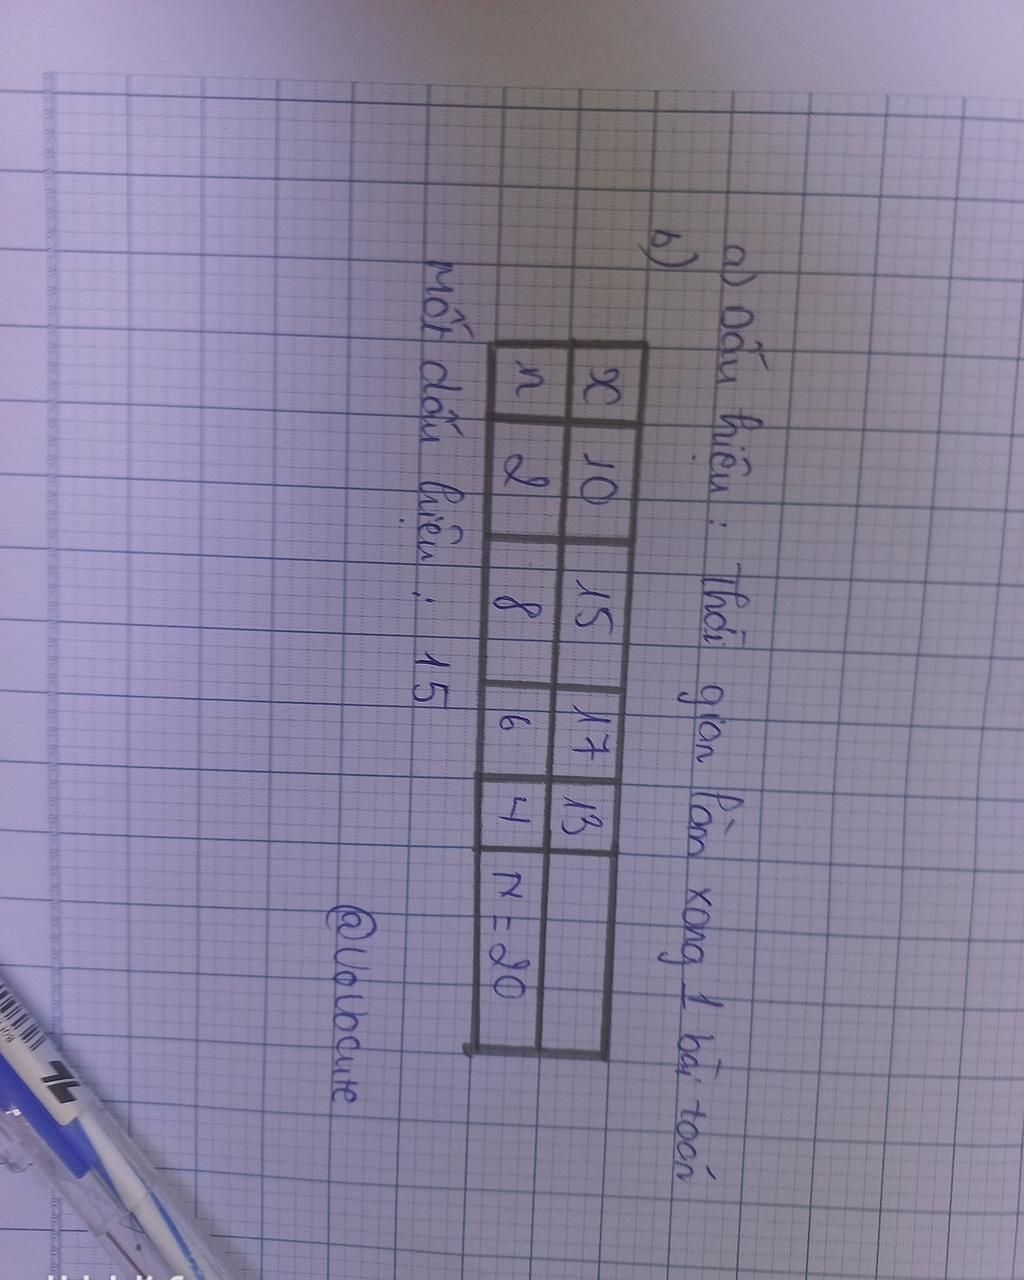 a) Dấu hiệu : Thời gian làm xong 1 bài toán
b)
x 10 15 17 13
n 2 8 6 4 N = 20
Mốt dấu hiệu : 15
@VoVocute